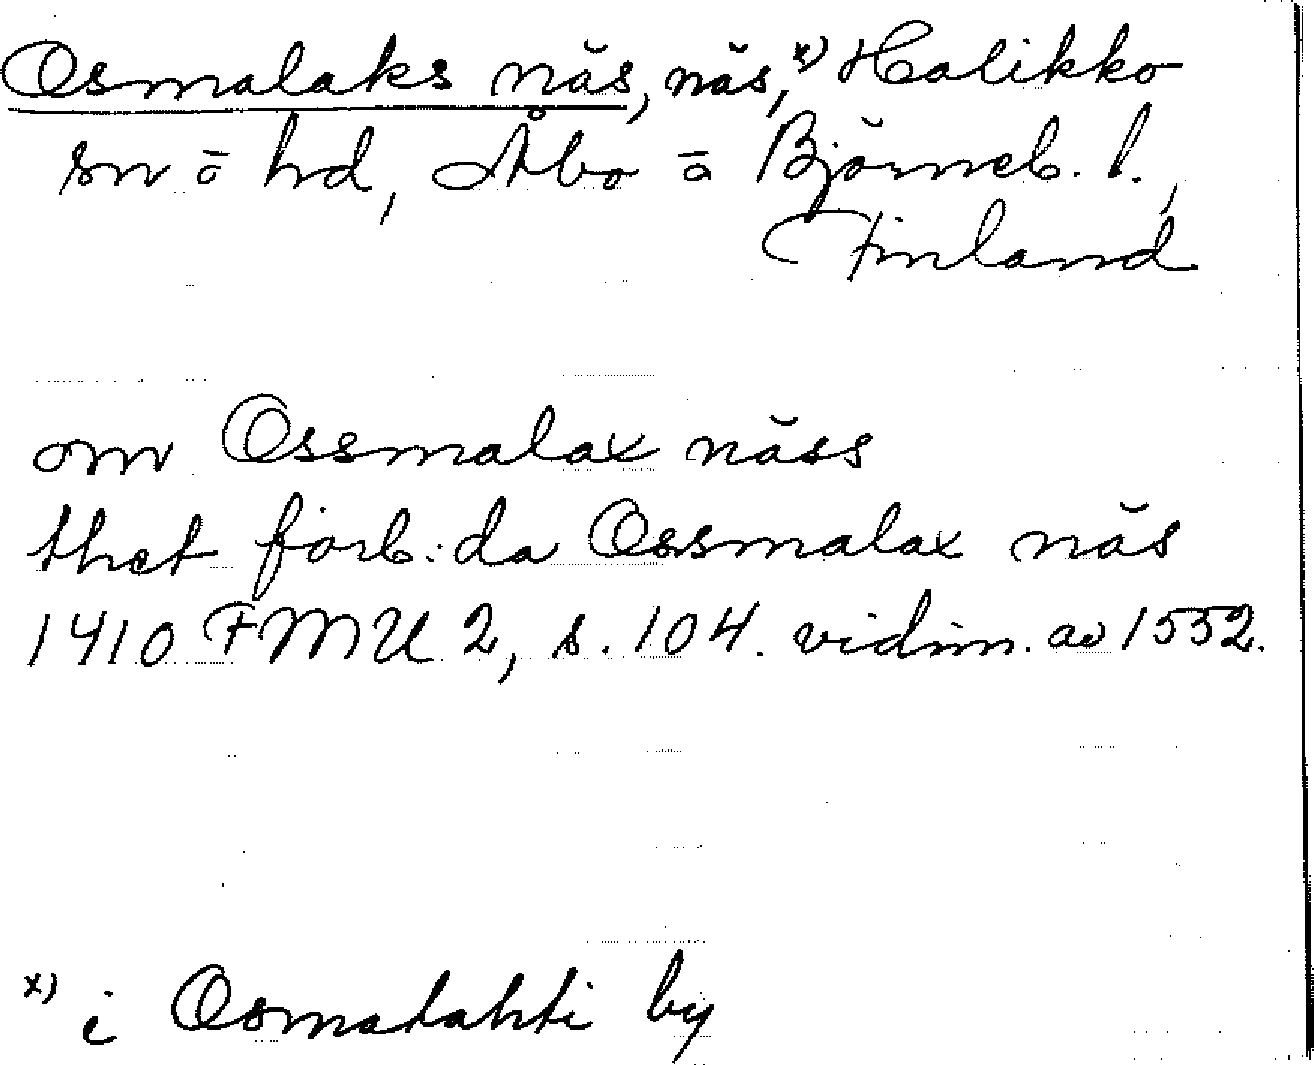 Osmalaks näs, näs, x) Halikko
sn o hd, Åbo o Björneb. l.,
Finland
om Ossmalax näss
thet förb:da Ossmalax näs
1410 FMU 2, s. 104. vidim. av 1552.
x) i Osmalahti by